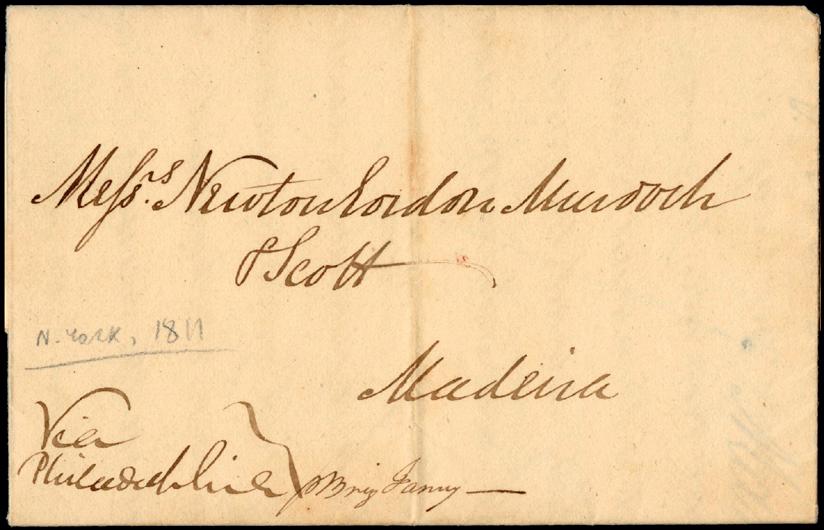 Messrs. Newton Gordon Murdoch
& Scott
N. York, 1811
Madeira
Via
Philadelphia
p Brig Fanny